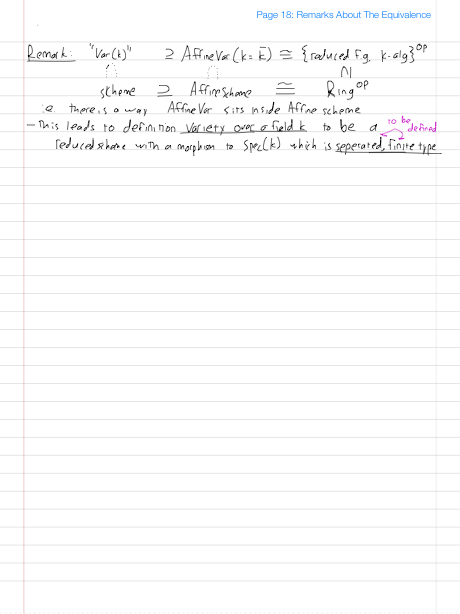 Page 18: Remarks About The Equivalence
Remark: "Var(k)" ⊇ AffineVar(k=k̄) ≅ {reduced f.g. k-alg}^op
scheme ⊇ Affinescheme ≅ Ring^op
i.e. there is a way AffineVar sits inside Affine scheme
- This leads to definition Variety over a field k to be a
to be defined
reduced scheme with a morphism to Spec(k) which is seperated, finite type